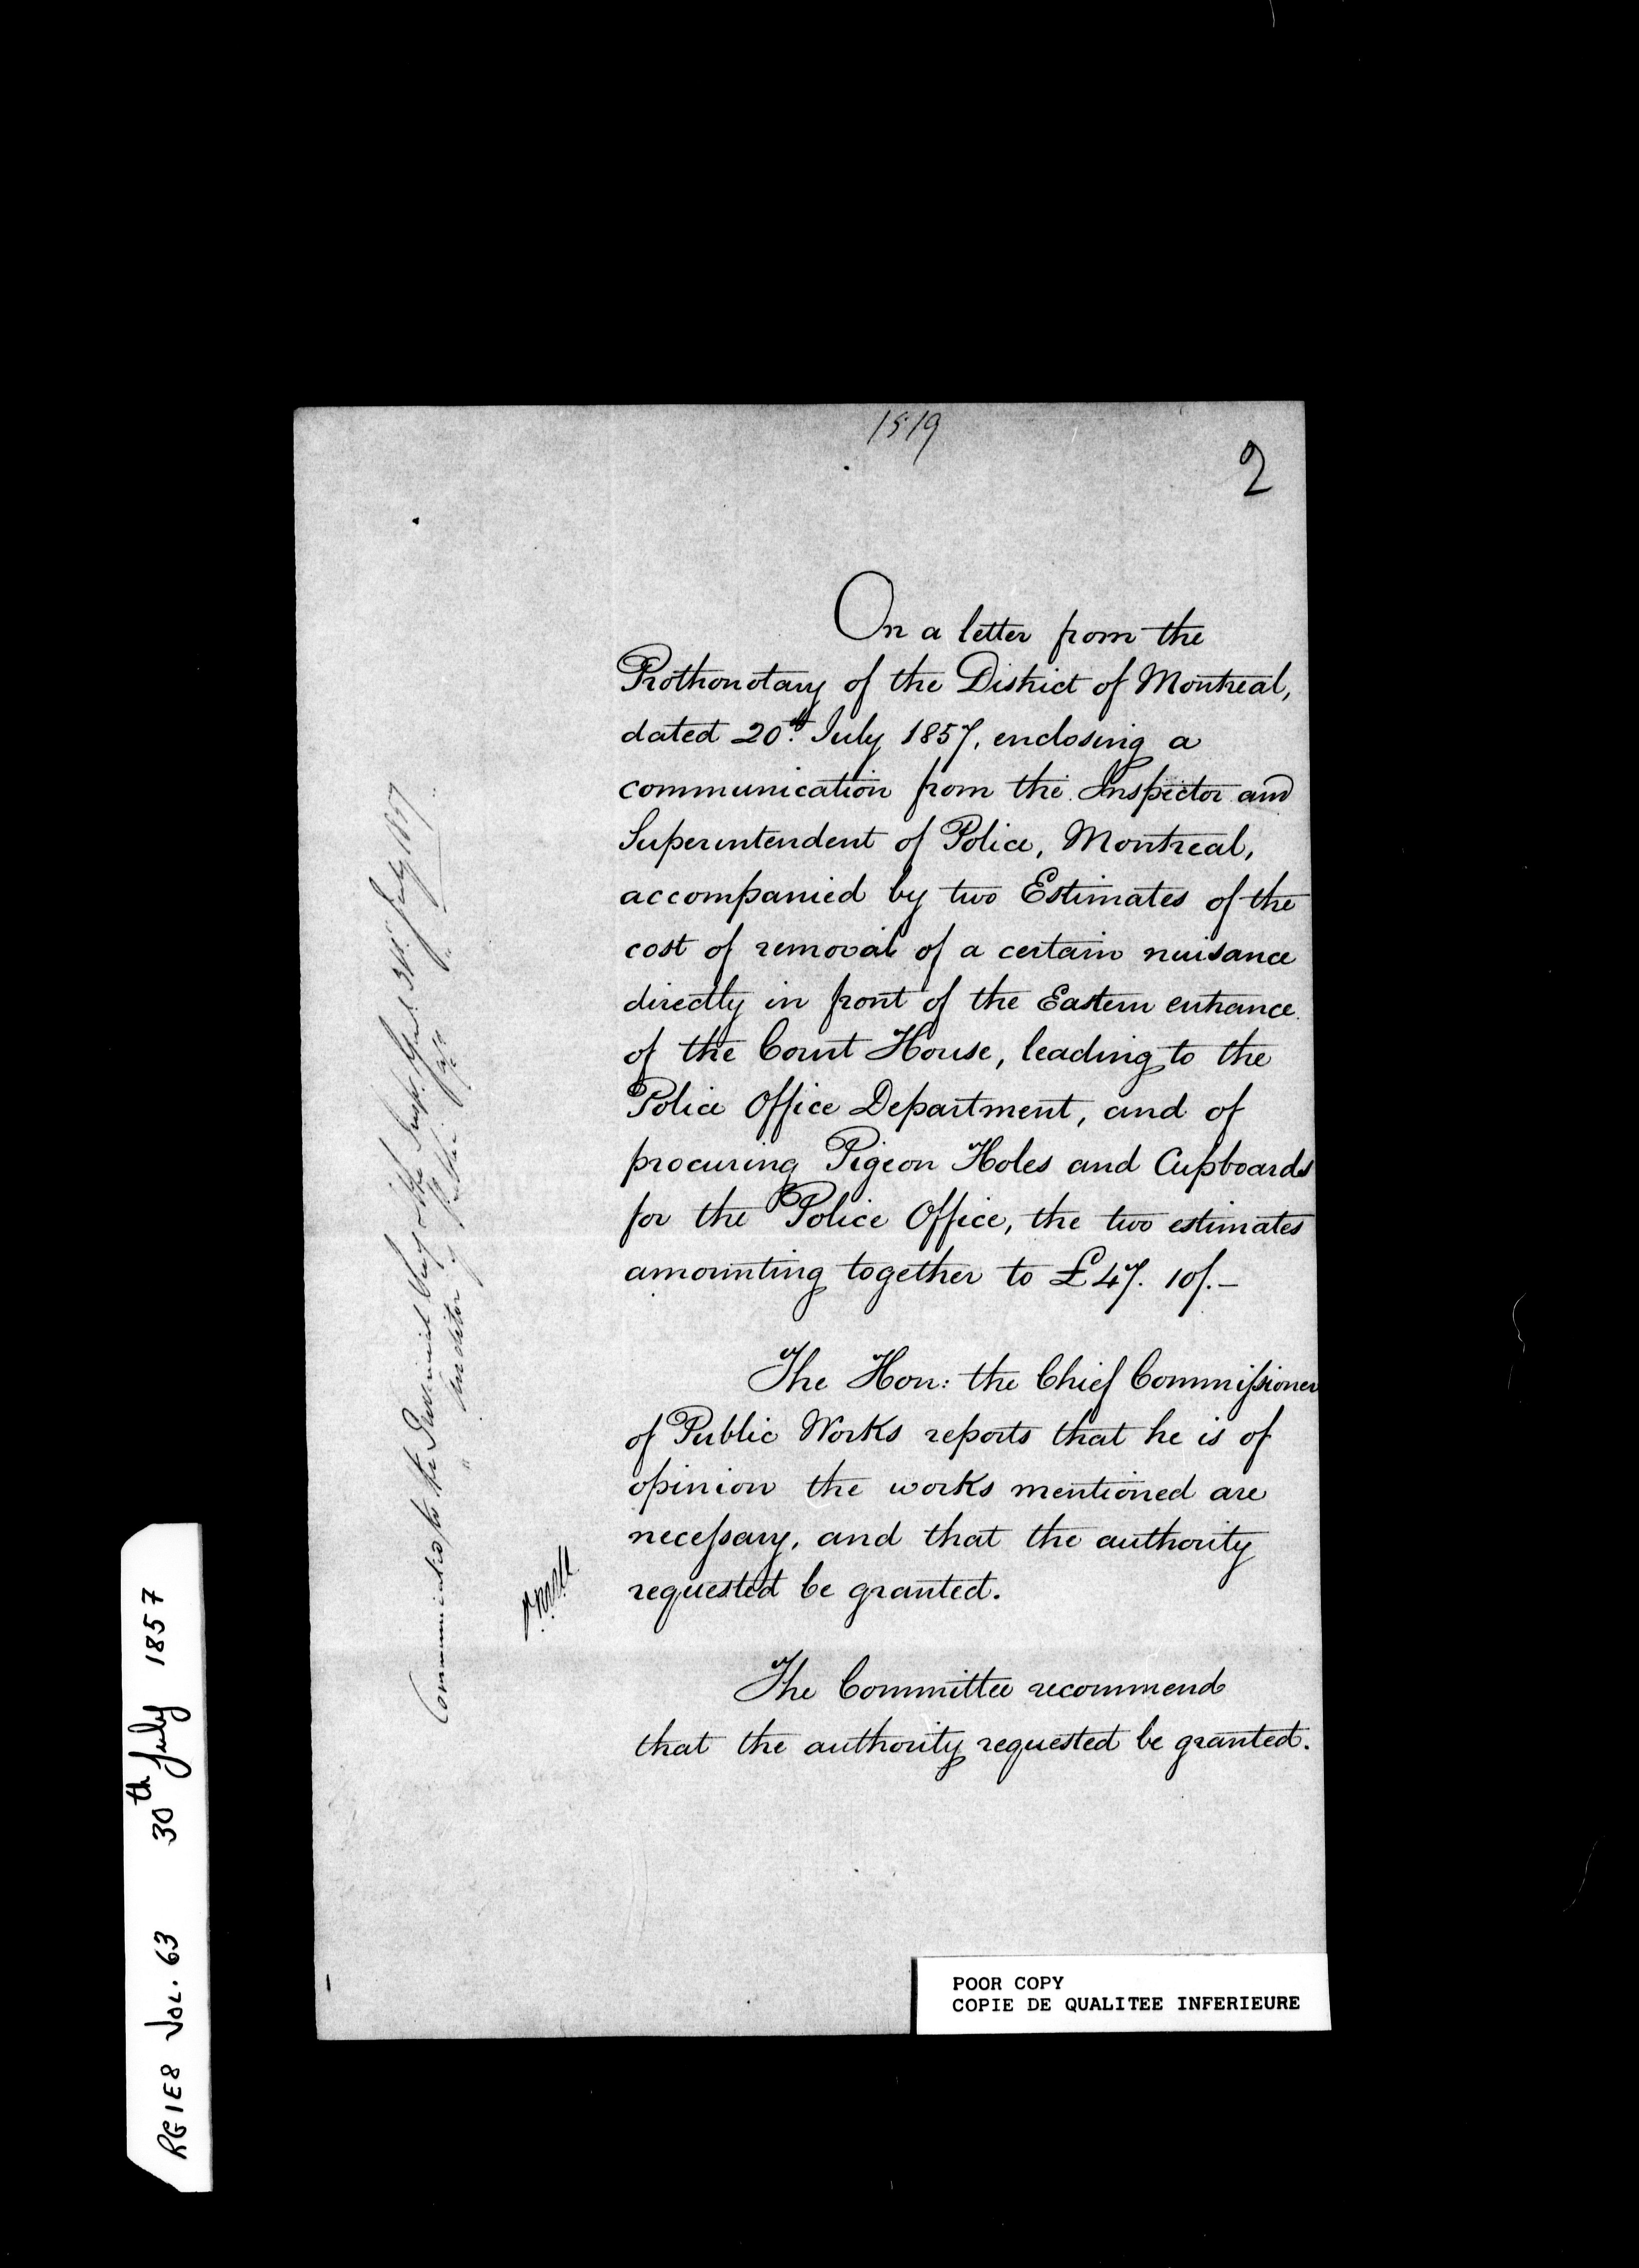 1519
2
On a letter from the
Prothonotary of the District of Montreal,
dated 20th July 1857, enclosing a
communication from the Inspector and
Superintendent of Police, Montreal,
accompanied by two Estimates of the
cost of removal of a certain nuisance
directly in front of the Eastern entrance
of the Court House, leading to the
Police Office Department, and of
procuring Pigeon Holes and Cupboards
for the Police Office, the two estimates
amounting together to £47. 10/.-
The Hon: the Chief Commissioner
of Public Works reports that he is of
opinion the works mentioned are
necessary, and that the authority
requested be granted.
The Committee recommend
that the authority requested be granted.
to the Insp. Genl 31st July 1857
" Auditor " "
RG1E8 VOL. 63 30th July 1857
POOR COPY
COPIE DE QUALITEE INFERIEURE